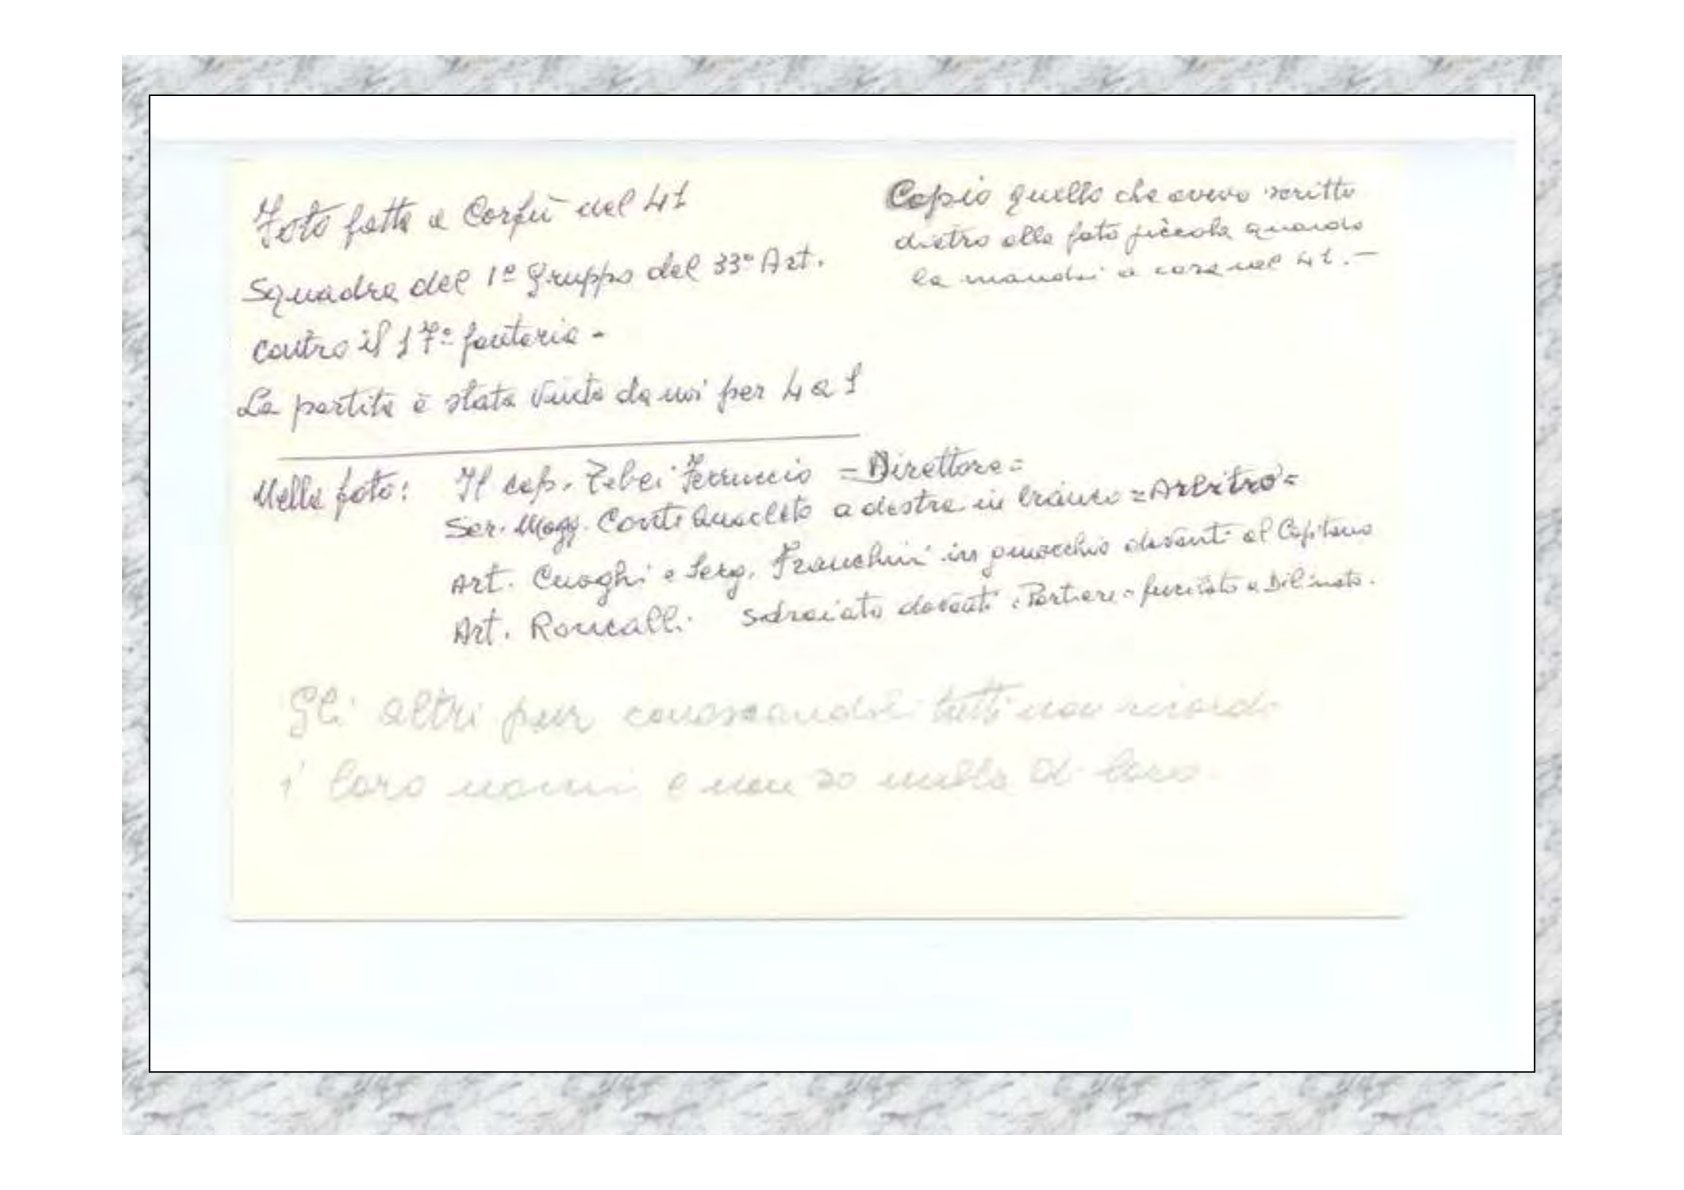 Foto fatta a Corfù nel 41
Squadra del 1º Gruppo del 33º Art.
contro il 17º fanteria -
La partita è stata vinta da noi per 4 a 1
Copio quello che avevo scritto
dietro alla foto piccola quando
la mandai a casa nel 41. -
Nella foto: Il cap. Ferruccio = Direttore =
Ser. Magg. Conti a destra in bianco = Arbitro =
Art. Cuoghi e Serg. Franchini in ginocchio davanti al Capitano
Art. Roncalli sdraiato davanti = Portiere = fucilato a Dilinata.
Gli altri pur conoscendoli tutti non ricordo
i loro nomi e non so nulla di loro.